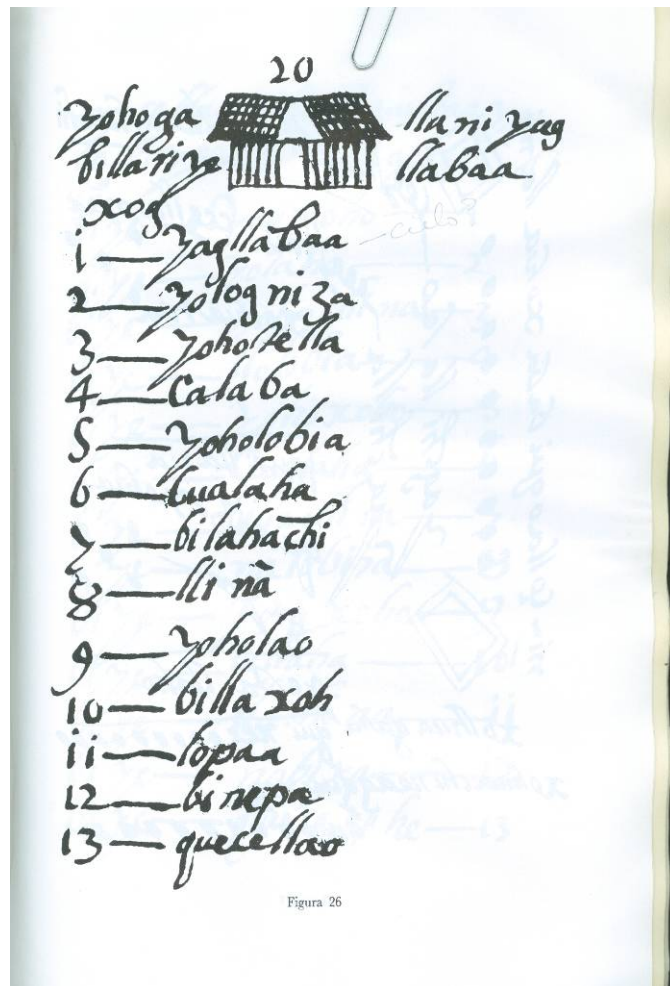 20
yohoga llani yag
billa riye llabaa
xog
1 — yagllabaa
2 — yologniza
3 — yohotella
4 — Calaba
5 — yoholobia
6 — Lualaha
7 — bilahachi
8 — lli nã
9 — yoholao
10 — billa xoh
11 — lopaa
12 — binepa
13 — quecellao
Figura 26